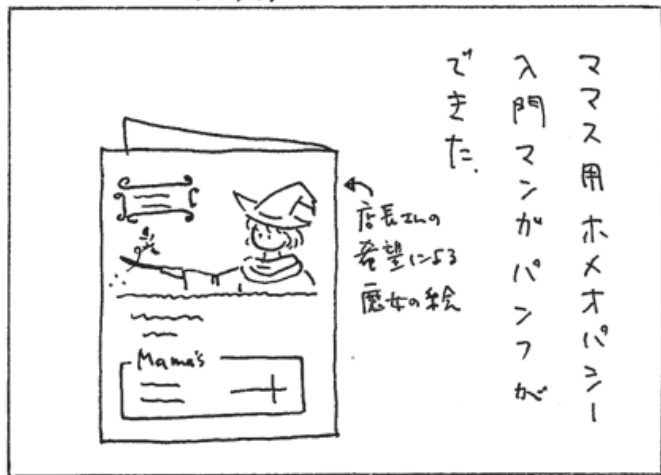 ママズ用ホメオパシー
入門マンガパンフが
できた.
店長さんの
希望による
魔女の絵
Mama's